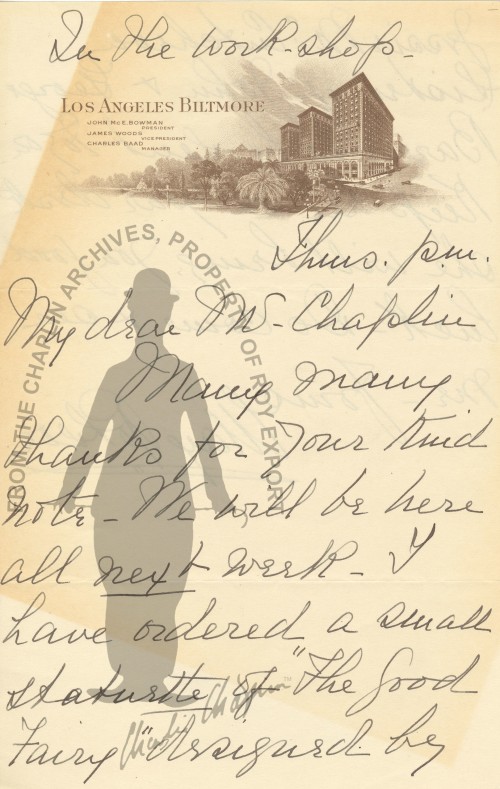 In the work-shop-
LOS ANGELES BILTMORE
JOHN McE. BOWMAN
PRESIDENT
JAMES WOODS
VICE PRESIDENT
CHARLES BAAD
MANAGER
Thurs. p.m.
My dear Mr- Chaplin
Many many
thanks for your kind
note- We will be here
all next week- I
have ordered a small
statuette of "The Good
Fairy" designed by
FROM THE CHAPLIN ARCHIVES, PROPERTY OF ROY EXPORT
Charlie Chaplin™